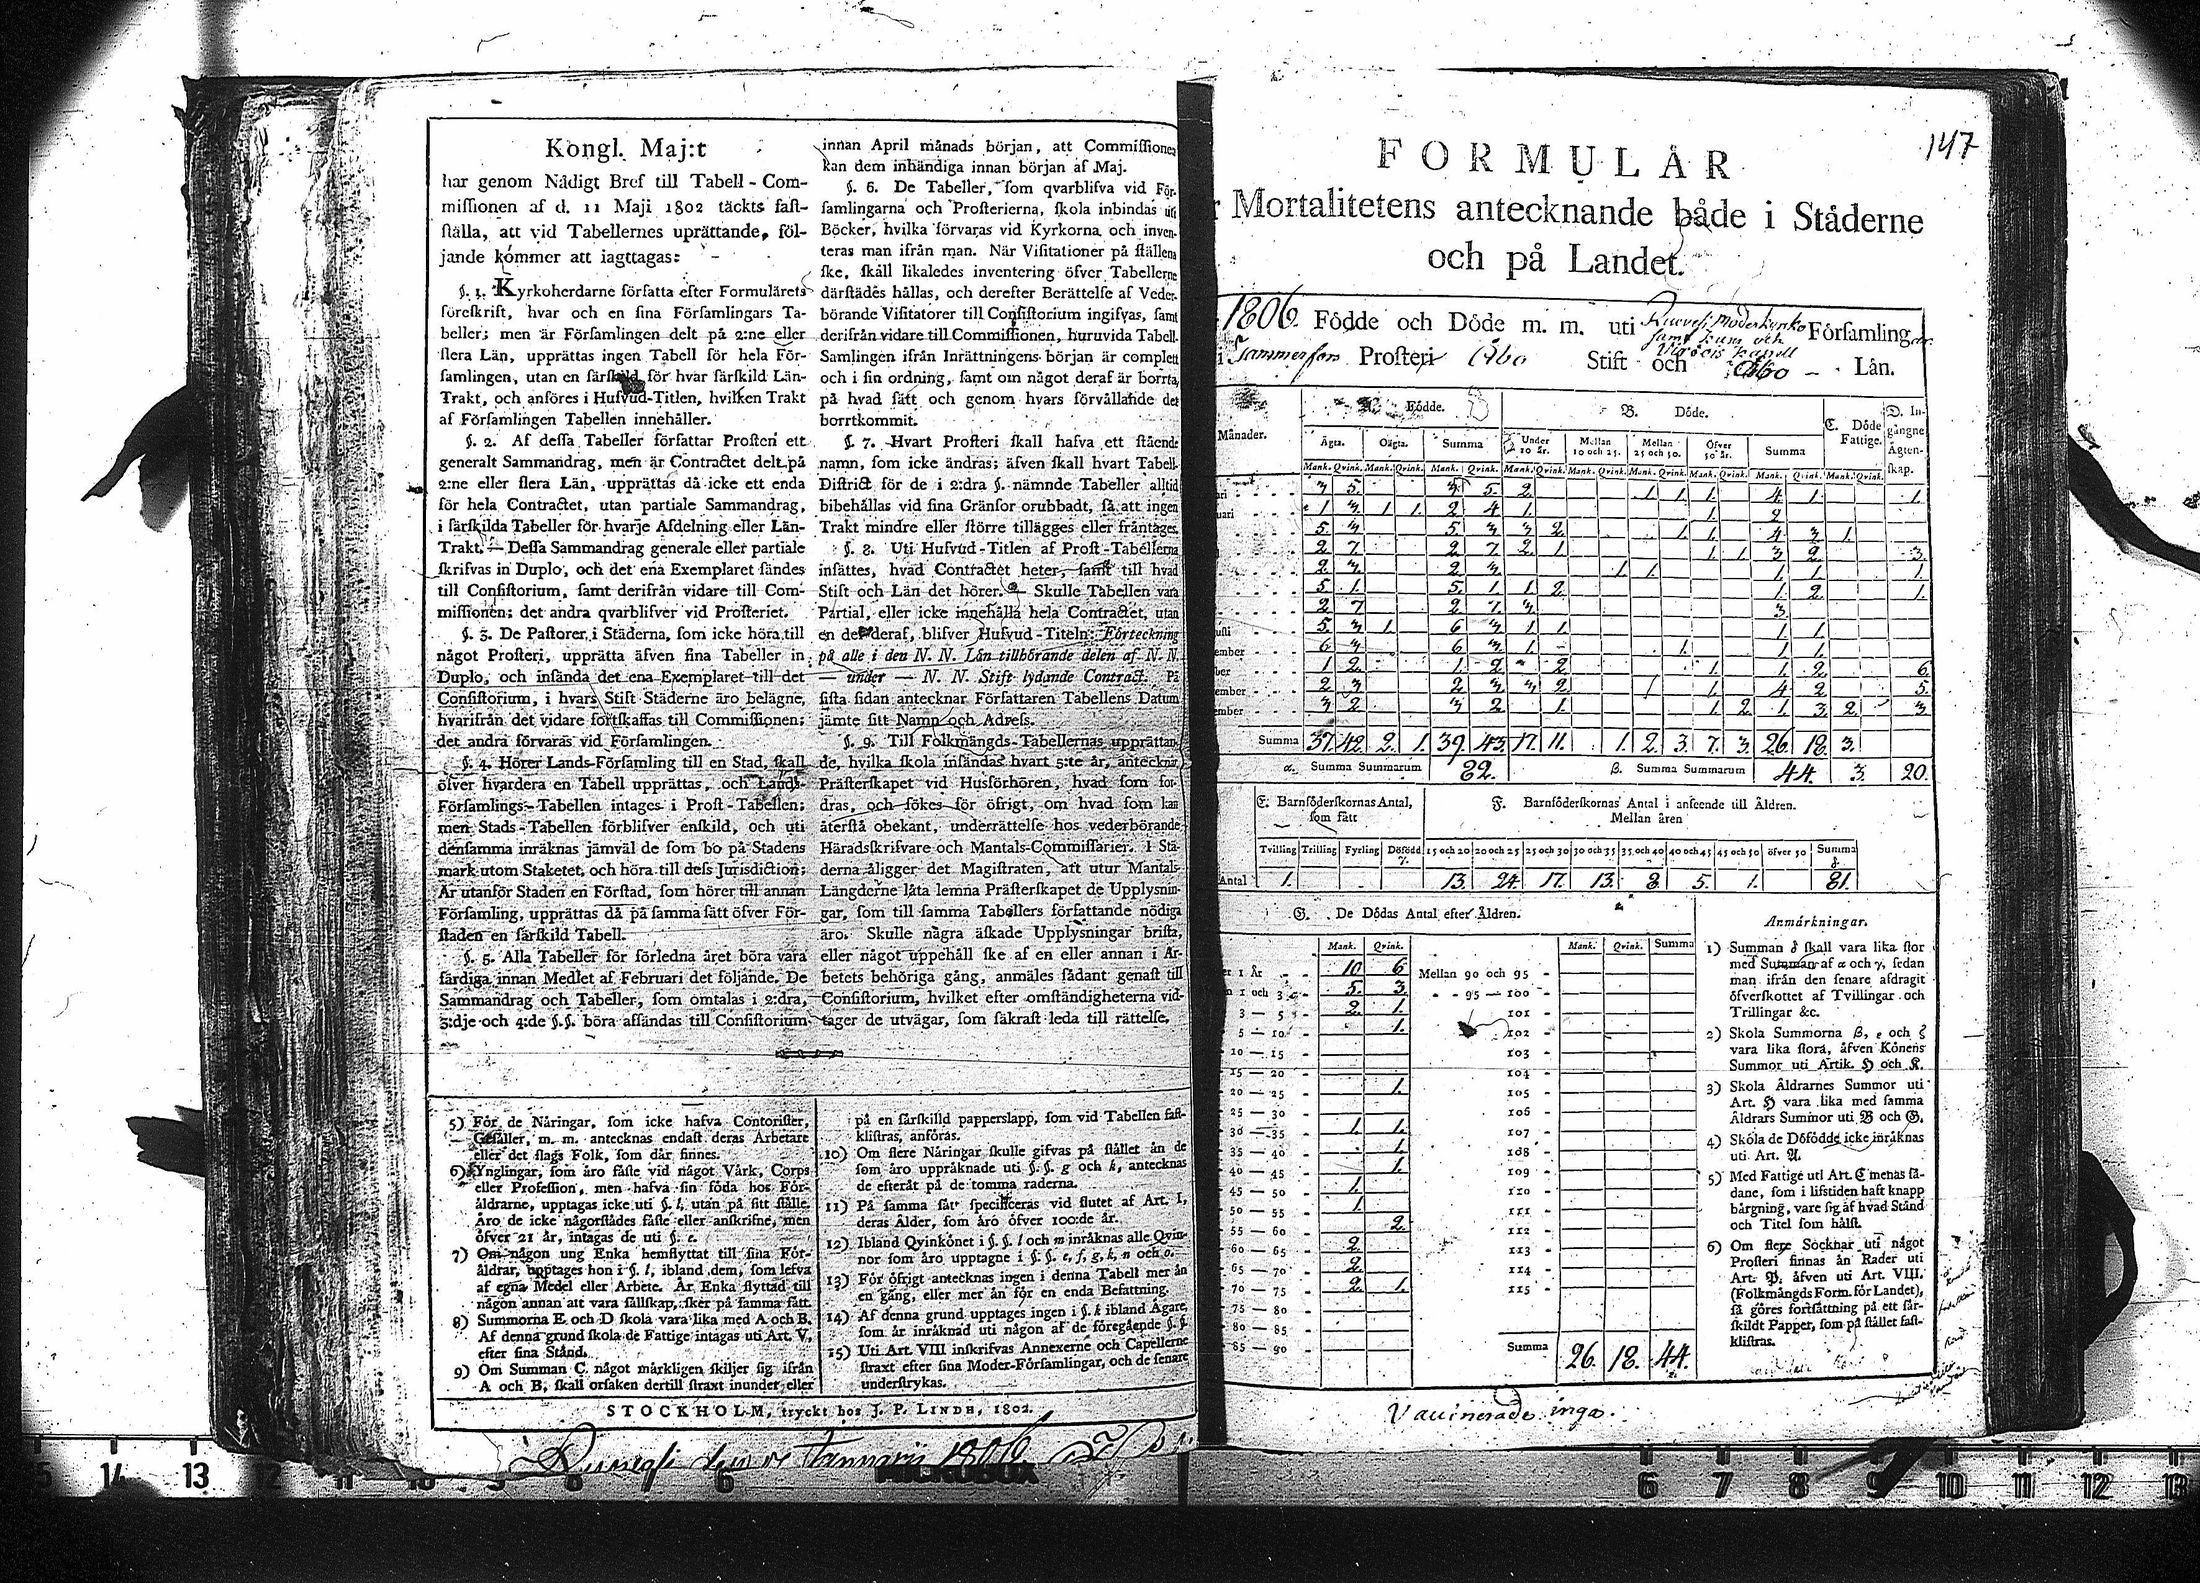 Kongl. Maj:t
har genom Nådigt Bref till Tabell-Com-
missionen af d. 11 Maji 1802 täckts fast-
ställa, att vid Tabellernes uprättande, föl-
jande kommer att iagttagas:
§. 1. Kyrkoherdarne författa efter Formulärets
föreskrift, hvar och en sina Församlingars Ta-
beller; men är Församlingen delt på 2:ne eller
flera Län, upprättas ingen Tabell för hela För-
samlingen, utan en särskild för hvar särskild Län-
Trakt, och anföres i Hufvud-Titlen, hvilken Trakt
af Församlingen Tabellen innehåller.
§. 2. Af dessa Tabeller författar Prosten ett
generalt Sammandrag, men är Contractet delt på
2:ne eller flera Län, upprättas då icke ett enda
för hela Contractet, utan partiale Sammandrag,
i särskilda Tabeller för hvarje Afdelning eller Län-
Trakt. — Dessa Sammandrag generale eller partiale
skrifvas in Duplo, och det ena Exemplaret sändes
till Consistorium, samt derifrån vidare till Com-
missionen; det andra qvarblifver vid Prosteriet.
§. 3. De Pastorer i Städerna, som icke höra till
något Prosteri, upprätta äfven sina Tabeller in
Duplo, och insända det ena Exemplaret till det
Consistorium, i hvars Stift Städerne äro belägne,
hvarifrån det vidare fortskaffas till Commissionen;
det andra förvaras vid Församlingen.
§. 4. Hörer Lands-Församling till en Stad, skall
öfver hvardera en Tabell upprättas, och Lands-
Församlings-Tabellen intages i Prost-Tabellen;
men Stads-Tabellen förblifver enskild, och uti
densamma inräknas jämväl de som bo på Stadens
mark utom Staketet, och höra till dess Jurisdiction;
Är utanför Staden en Förstad, som hörer till annan
Församling, upprättas då på samma sätt öfver För-
staden en särskild Tabell.
§. 5. Alla Tabeller för förledna året böra vara
färdiga innan Medlet af Februari det följande. De
Sammandrag och Tabeller, som omtalas i 2:dra,
3:dje och 4:de §.§. böra afsändas till Consistorium
innan April månads början, att Commissionen
kan dem inhändiga innan början af Maj.
§. 6. De Tabeller, som qvarblifva vid För-
samlingarna och Prosterierna, skola inbindas uti
Böcker, hvilka förvaras vid Kyrkorna och inven-
teras man ifrån man. När Visitationer på ställena
ske, skall likaledes inventering öfver Tabellerne
därstädes hållas, och derefter Berättelse af Veder-
börande Visitatorer till Consistorium ingifvas, samt
derifrån vidare till Commissionen, huruvida Tabell-
Samlingen ifrån Inrättningens början är complett
och i sin ordning, samt om något deraf är borrta,
på hvad sätt och genom hvars förvållande det
borrtkommit.
§. 7. Hvart Prosteri skall hafva ett stående
namn, som icke ändras; äfven skall hvart Tabell-
District för de i 2:dra §. nämnde Tabeller alltid
bibehållas vid sina Gränsor orubbadt, så att ingen
Trakt mindre eller större tillägges eller fråntages.
§. 8. Uti Hufvud-Titlen af Prost-Tabellerna
insättes, hvad Contractet heter, samt till hvad
Stift och Län det hörer. — Skulle Tabellen vara
Partial, eller icke innehålla hela Contractet, utan
en del deraf, blifver Hufvud-Titeln: Förteckning
på alle i den N. N. Län tillhörande delen af N. N.
— under — N. N. Stift lydande Contract. På
sista sidan antecknar Författaren Tabellens Datum
jämte sitt Namn och Adress.
§. 9. Till Folkmängds-Tabellernas upprättan-
de, hvilka skola insändas hvart 5:te år, antecknar
Prästerskapet vid Husförhören, hvad som for-
dras, och sökes för öfrigt, om hvad som kan
återstå obekant, underrättelse hos vederbörande
Häradsskrifvare och Mantals-Commissarier. I Stä-
derna åligger det Magistraten, att utur Mantals-
Längderne låta lemna Prästerskapet de Upplysnin-
gar, som till samma Tabellers författande nödiga
äro. Skulle några äskade Upplysningar brista,
eller något uppehåll ske af en eller annan i Ar-
betets behöriga gång, anmäles sådant genast till
Consistorium, hvilket efter omständigheterna vid-
tager de utvägar, som säkrast leda till rättelse.
5) För de Näringar, som icke hafva Contorister,
Gesäller, m. m. antecknas endast deras Arbetare
eller det slags Folk, som där finnes.
6) Ynglingar, som äro fäste vid något Värk, Corps
eller Profession, men hafva sin föda hos För-
äldrarne, upptagas icke uti §. l, utan på sitt ställe.
Äro de icke någorstädes fäste eller anskrifne, men
öfver 21 år, intagas de uti §. e.
7) Om någon ung Enka hemflyttat till sina För-
äldrar, upptages hon i §. l, ibland dem, som lefva
af egna Medel eller Arbete. Är Enka flyttad till
någon annan att vara sällskap, sker på samma sätt.
8) Summorna E och D skola vara lika med A och B.
Af denna grund skola de Fattige intagas uti Art. V,
efter sina Stånd.
9) Om Summan C något märkligen skiljer sig ifrån
A och B, skall orsaken dertill straxt inunder, eller
på en särskilld papperslapp, som vid Tabellen fast-
klistras, anföras.
10) Om flere Näringar skulle gifvas på stället än de
som äro uppräknade uti §. §. g och h, antecknas
de efteråt på de tomma raderna.
11) På samma sätt specificeras vid slutet af Art. I,
deras Ålder, som äro öfver 100:de år.
12) Ibland Qvinkönet i §. §. l och m inräknas alle Qvin-
nor som äro upptagne i §. §. e, f, g, h, n och o.
13) För öfrigt antecknas ingen i denna Tabell mer än
en gång, eller mer än för en enda Befattning.
14) Af denna grund upptages ingen i §. k ibland Ägare,
som är inräknad uti någon af de föregående §. §.
15) Uti Art. VIII inskrifvas Annexerne och Capellerne
straxt efter sina Moder-Församlingar, och de senare
understrykas.
STOCKHOLM, tryckt hos J. P. LINDH, 1802.
Januarii 1806
MICROBOX
147
FORMULÄR
Mortalitetens antecknande både i Städerne
och på Landet.
1806. Födde och Döde m. m. uti Ruovesi Moderkyrko Församling
samt
i Tammerfors Prosteri Åbo Stift och Åbo Län.
Månader. Födde. B. Döde. C. Döde Fattige. D. In-gångne Ägten-skap.
Ägta. Oägta. Summa Under 10 år. Mellan 10 och 25. Mellan 25 och 50. Öfver 50 år. Summa
Mank. Qvink. Mank. Qvink. Mank. Qvink. Mank. Qvink. Mank. Qvink. Mank. Qvink. Mank. Qvink. Mank. Qvink. Mank. Qvink.
3 5. 3 5. 2. 1. 1. 1. 4. 1. 1.
1 3 1. 1. 2 4 1. 1. 2
5. 3 5. 3 3 2. 1. 1. 4 3 1.
2 7. 2 7 2. 1. 1. 1. 3 2. 3.
2. 3 2. 3 1. 1. 1. 1. 1.
5 1. 5. 1 1 2. 1. 2. 1.
2 7 2 7. 3 3.
5. 3 1. 6 3 1. 1. 1. 1.
ember 6 3 6 3 1. 1. 1 1.
1 2. 1. 2 2 1. 1. 2 6.
ember 2 3 2 3 3 2. 1 1. 4 2 5.
ember 3 2 3 2 1. 1. 2. 1. 3. 2. 3.
Summa 37. 42. 2. 1. 39. 43. 17. 11. 1. 2. 3. 7. 3. 26. 18. 3.
α. Summa Summarum 82. β. Summa Summarum 44. 3. 20.
E. Barnföderskornas Antal, som fått
F. Barnföderskornas Antal i anseende till Åldren.
Mellan åren
Tvilling Trilling Fyrling Dödfödd γ. 15 och 20 20 och 25 25 och 30 30 och 35 35 och 40 40 och 45 45 och 50 öfver 50 Summa δ
Antal 1. 13. 24. 17. 13. 8. 5. 1. 81.
G. De Dödas Antal efter Åldren.
Mank. Qvink. Mank. Qvink. Summa
er 1 År 10 6 Mellan 90 och 95
1 och 3 5. 3. 95 — 100
3 — 5 2. 1. 101
5 — 10 1. 102
10 — 15 103
15 — 20 104
20 — 25 1. 105
25 — 30 106
30 — 35 1. 1. 107
35 — 40 1. 108
40 — 45 1. 109
45 — 50 1. 110
50 — 55 1. 111
55 — 60 2. 112
60 — 65 2. 113
65 — 70 2. 114
70 — 75 2. 1. 115
75 — 80
80 — 85
85 — 90
Summa 26. 18. 44.
Anmärkningar.
1) Summan δ skall vara lika stor
med Summan af α och γ, sedan
man ifrån den senare afdragit
öfverskottet af Tvillingar och
Trillingar &c.
2) Skola Summorna β, ε och ζ
vara lika stora, äfven Könens
Summor uti Artik. H och K.
3) Skola Åldrarnes Summor uti
Art. H vara lika med samma
Åldrars Summor uti B och G.
4) Skola de Döfödde icke inräknas
uti Art. A.
5) Med Fattige uti Art. C menas så-
dane, som i lifstiden haft knapp
bärgning, vare sig af hvad Stånd
och Titel som hälst.
6) Om flere Socknar uti något
Prosteri finnas än Rader uti
Art. D. äfven uti Art. VIII.
(Folkmängds Form. för Landet),
så göres fortsättning på ett sär-
skildt Papper, som på stället fast-
klistras.
Vaccinerade inga.